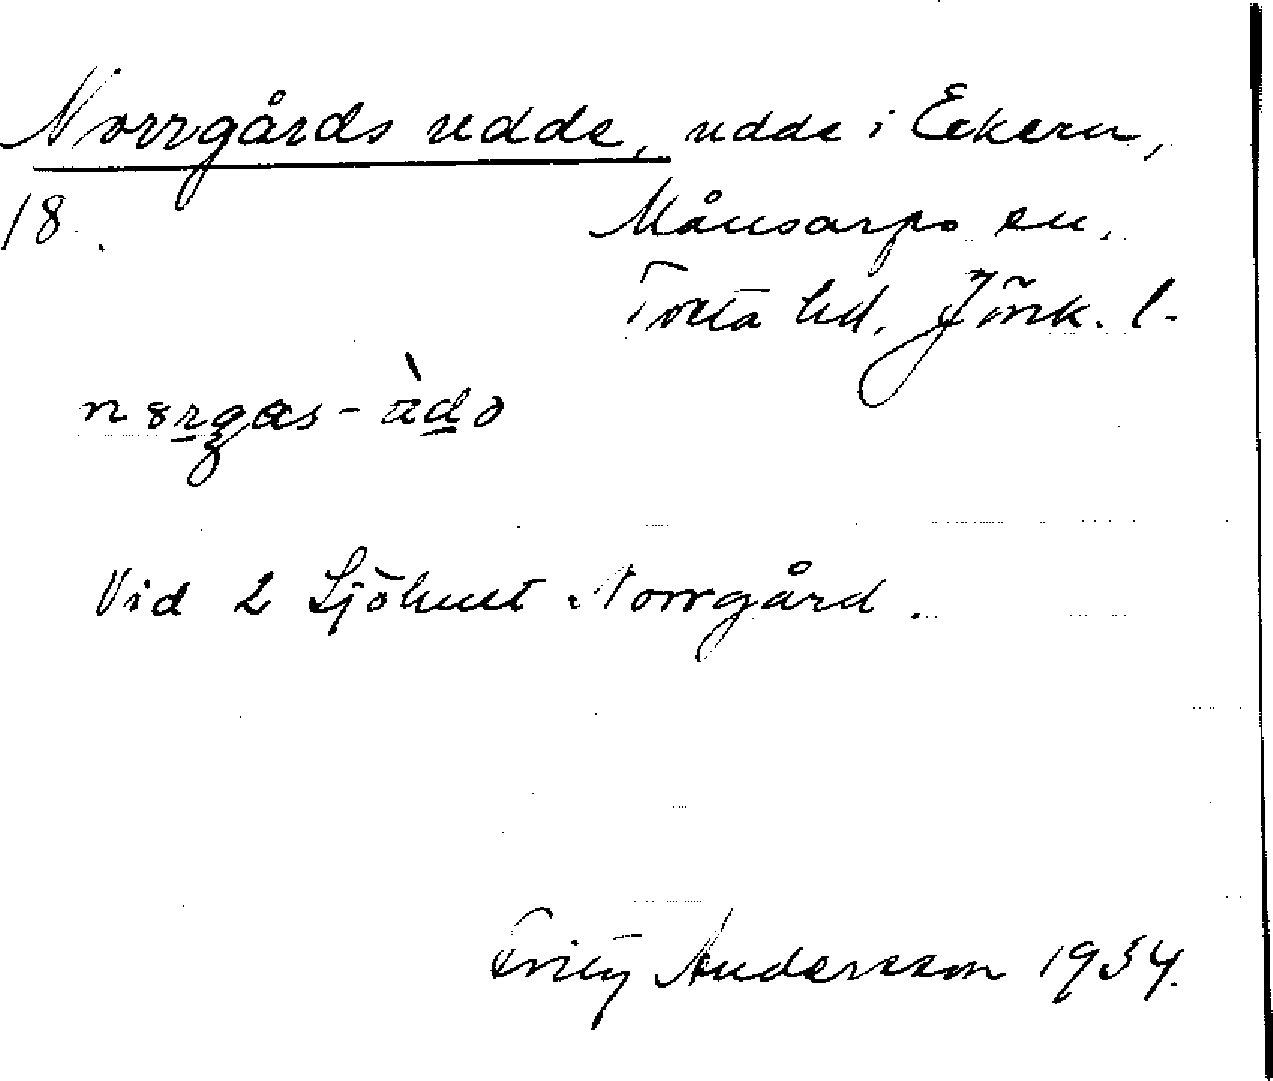 Norrgårds udde, udde i Eckern,
18. Månsarps sn,
Tveta hd, Jönk. l.
Vid 2 Sjöhult Norrgård.
Fritz Andersson 1934.